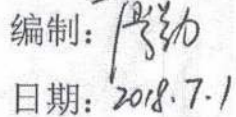 编制：
日期：2018.7.1